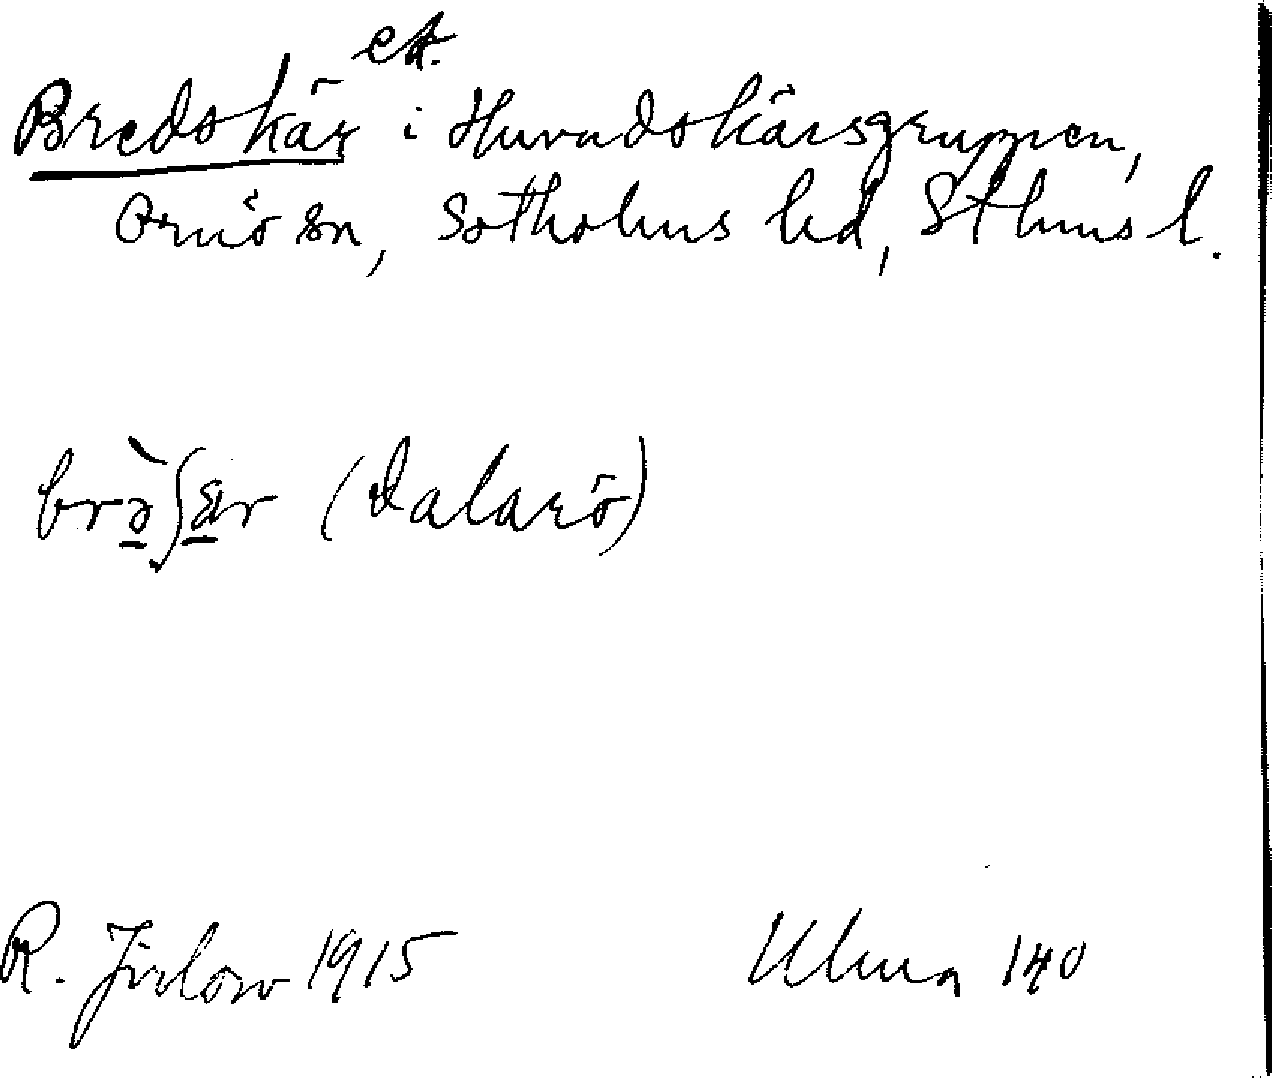 Bredskär et. i Huvudskärsgruppen,
Ornö sn, Sotholms hd, Sthms l.
brə̀ʃær (Dalarö)
R. Jirlow 1915 Ulma 140